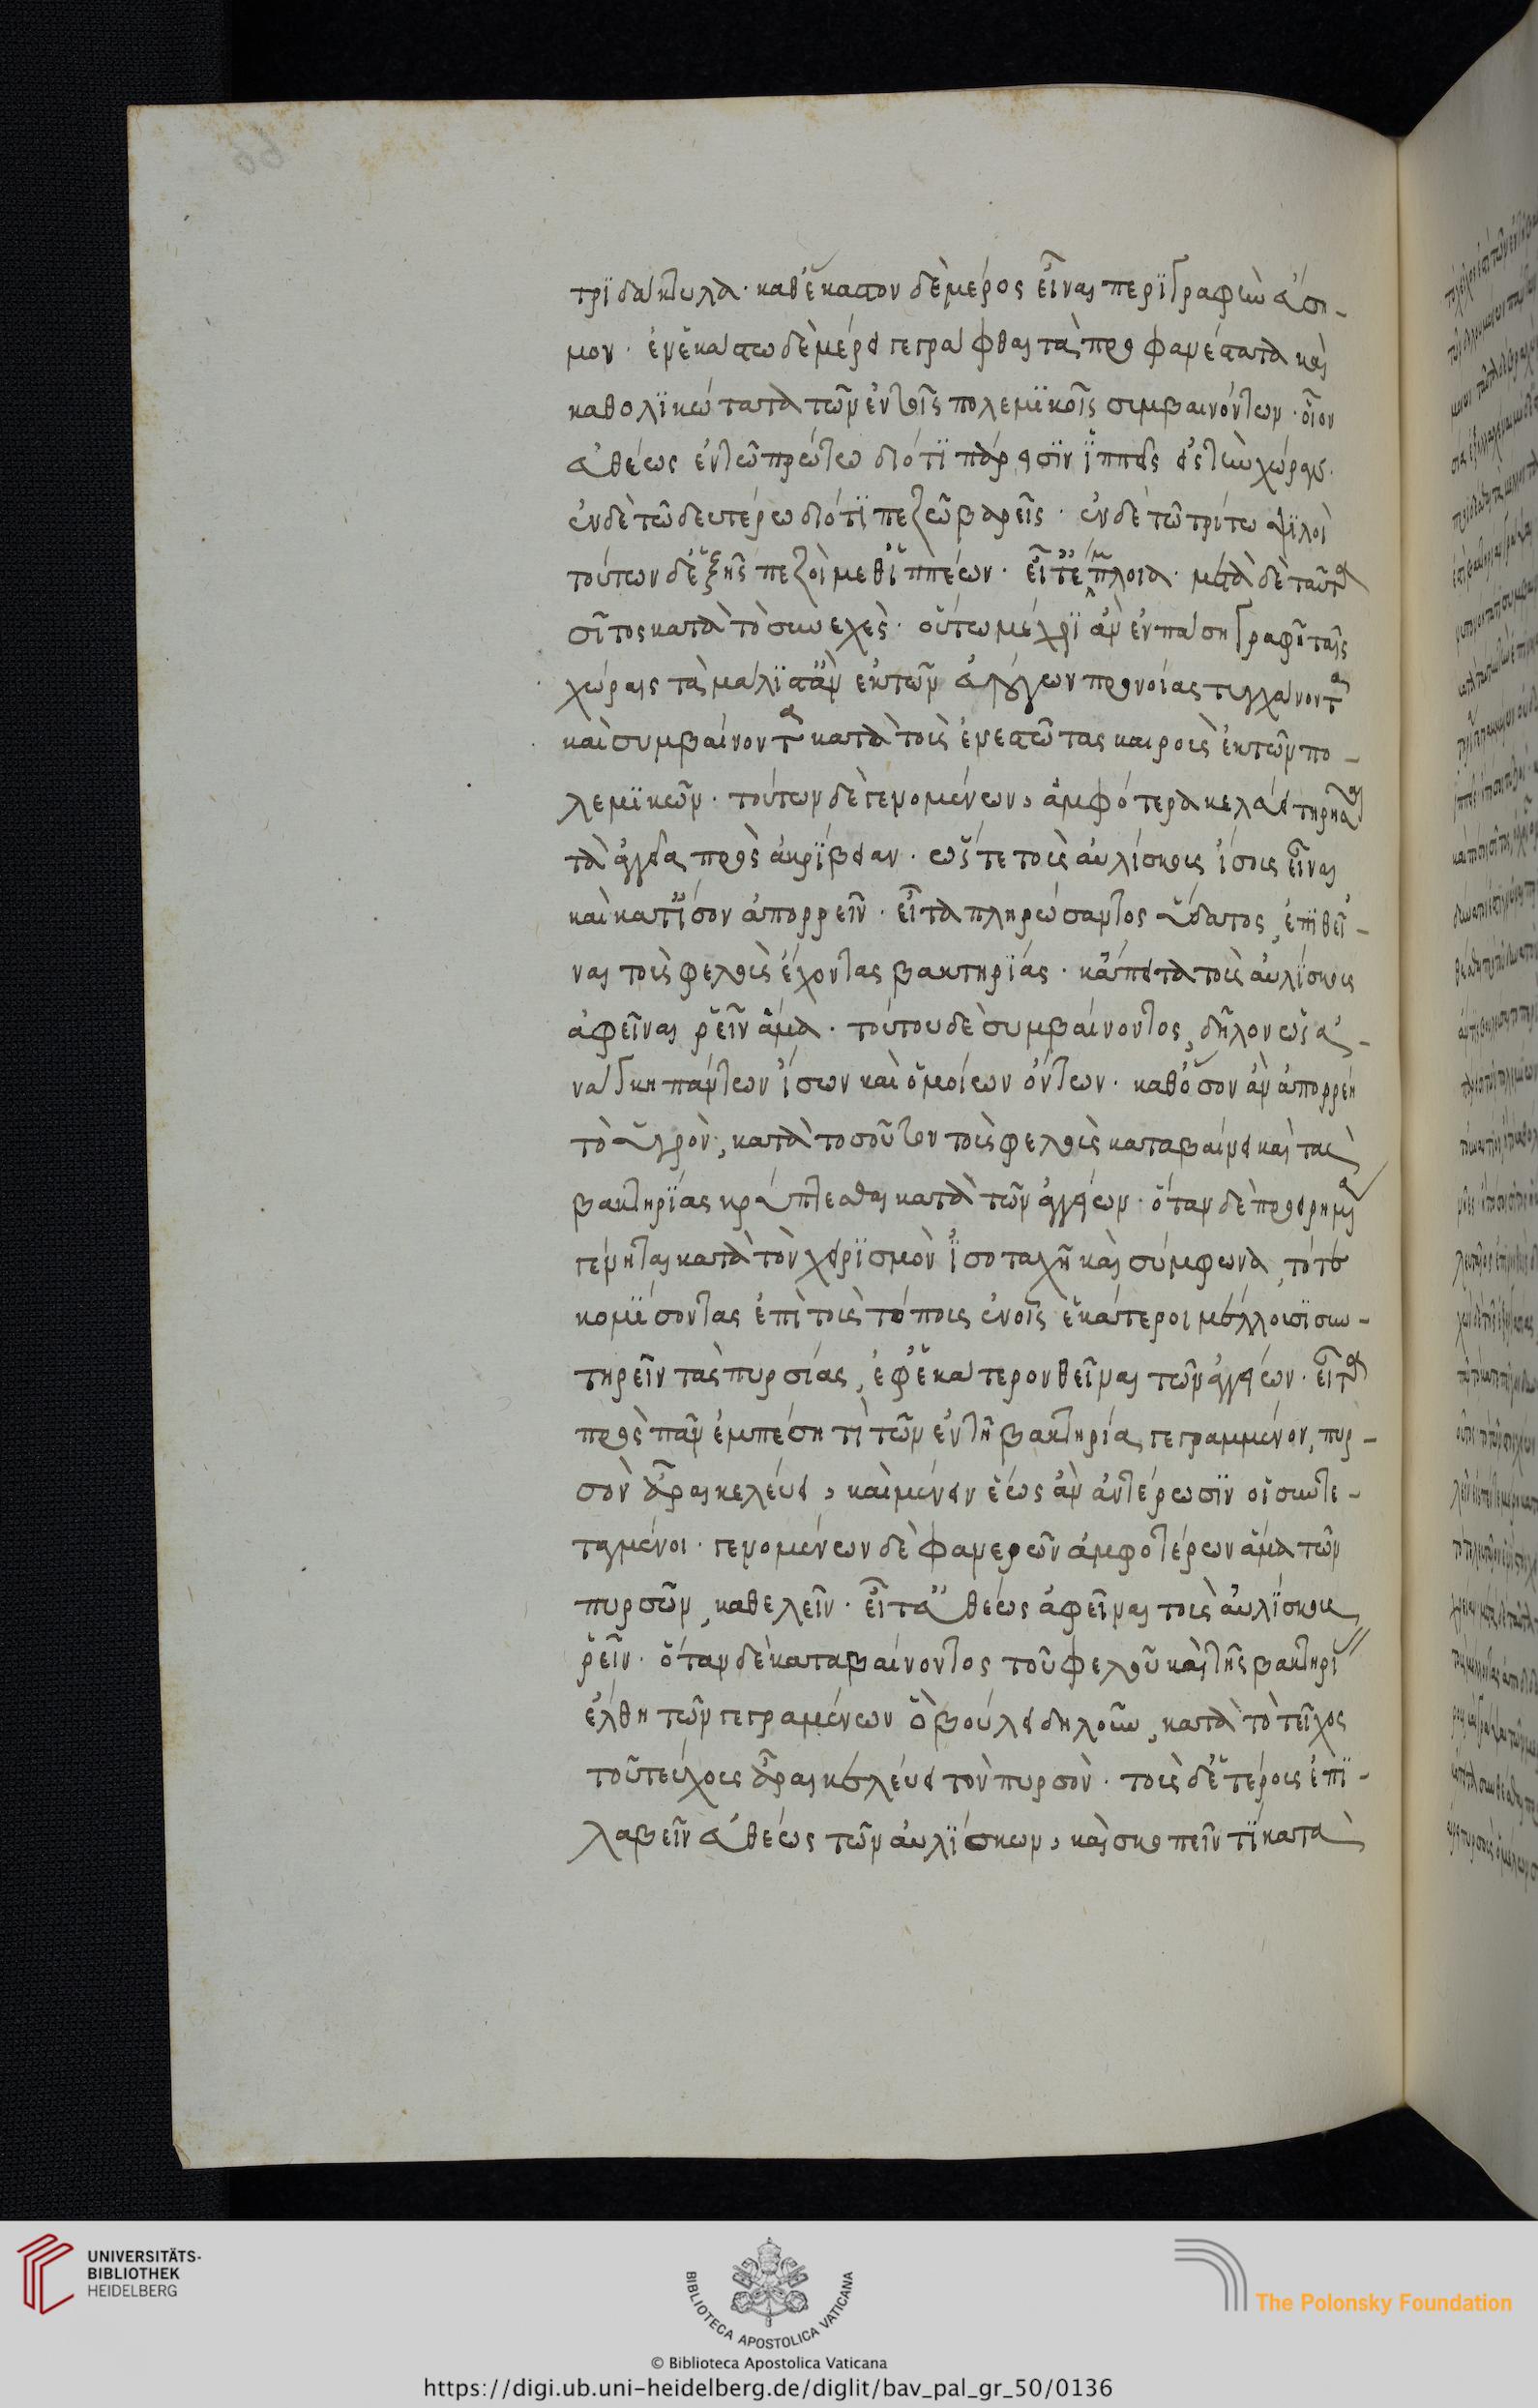 τριδάκτυλα· καθ᾽ ἕκαστον δὲ μέρος εἶναι περιγραφὴν εὔση-
μον· ἐν ἑκάστω δὲ μέρει γεγράφθαι τὰ προφανέστατα καὶ
καθολικώτατα τῶν ἐν τοῖς πολεμικοῖς συμβαινόντων· οἷον
εὐθέως ἐν τῶ πρώτω διότι πάρεισιν ἱππεῖς εἰς τὴν χώραν·
ἐν δὲ τῶ δευτέρω διότι πεζοὶ βαρεῖς· ἐν δὲ τῶ τρίτω ψιλοὶ
τούτων δ᾽ ἑξῆς πεζοὶ μεθ᾽ ἱππέων· εἶτ᾽ ἔτι πλοῖα· μετὰ δὲ ταῦτα
σῖτος κατὰ τὸ συνεχὲς· οὕτω μέχρι ἂν ἐν πάση γραφῆ ταῖς
χώραις τὰ μάλιστ᾽ ἂν ἐκ τῶν εὐλόγων προνοίας τυγχάνοντα
καὶ συμβαίνοντα κατὰ τοὺς ἐνεστῶτας καιροὺς ἐκ τῶν πο-
λεμικῶν· τούτων δὲ γενομένων, ἀμφότερα κελεύει τηρῆσαι
τὰ ἀγγεῖα πρὸς ἀκρίβειαν· ὥστε τοὺς αὐλίσκους ἴσους εἶναι
καὶ κατ᾽ ἴσον ἀπορρεῖν· εἶτα πληρώσαντος ὕδατος, ἐπιθεῖ-
ναι τοὺς φελλοὺς ἔχοντας βακτηρίας· κἄπειτα τοὺς αὐλίσκους
ἀφεῖναι ῥεῖν ἅμα· τούτου δὲ συμβαίνοντος, δῆλον ὡς ἀ-
νάγκη πάντων ἴσων καὶ ὁμοίων ὄντων· καθ᾽ ὅσον ἂν ἀπορρέη
τὸ ὑγρὸν, κατὰ τοσοῦτον τοὺς φελλοὺς καταβαίνει καὶ τὰς
βακτηρίας κρύπτεσθαι κατὰ τῶν ἀγγείων· ὅταν δὲ προειρημένα
γένηται κατὰ τὸν χειρισμὸν ἰσοταχῆ καὶ σύμφωνα, τότε
κομίσοντας ἐπὶ τοὺς τόπους ἐν οἷς ἑκάτεροι μέλλουσι συν-
τηρεῖν τὰς πυρσίας, ἐφ᾽ ἑκάτερον θεῖναι τῶν ἀγγείων· εἶτα
πρὸς πᾶν ἐμπέση τὶ τῶν ἐν τῆ βακτηρία γεγραμμένον, πυρ-
σὸν ἆραι κελεύει, καὶ μένειν ἕως ἂν ἀνταίρωσιν οἱ συντε-
ταγμένοι· γενομένων δὲ φανερῶν ἀμφοτέρων ἅμα τῶν
πυρσῶν, καθελεῖν· εἶτ᾽ εὐθέως ἀφεῖναι τοὺς αὐλίσκους
ῥεῖν· ὅταν δὲ καταβαίνοντος τοῦ φελλοῦ καὶ τῆς βακτηρί
ἔλθη τῶν γεγραμένων ὃ βούλει δηλοῦν, κατὰ τὸ τεῖχος
τοῦ τεύχους ἆραι κελεύει τὸν πυρσὸν· τοὺς δ᾽ ἑτέρους ἐπι-
λαβεῖν εὐθέως τῶν αὐλίσκων, καὶ σκοπεῖν τί κατὰ
66
UNIVERSITÄTS-
BIBLIOTHEK
HEIDELBERG
BIBLIOTECA APOSTOLICA VATICANA
© Biblioteca Apostolica Vaticana
The Polonsky Foundation
https://digi.ub.uni-heidelberg.de/diglit/bav_pal_gr_50/0136